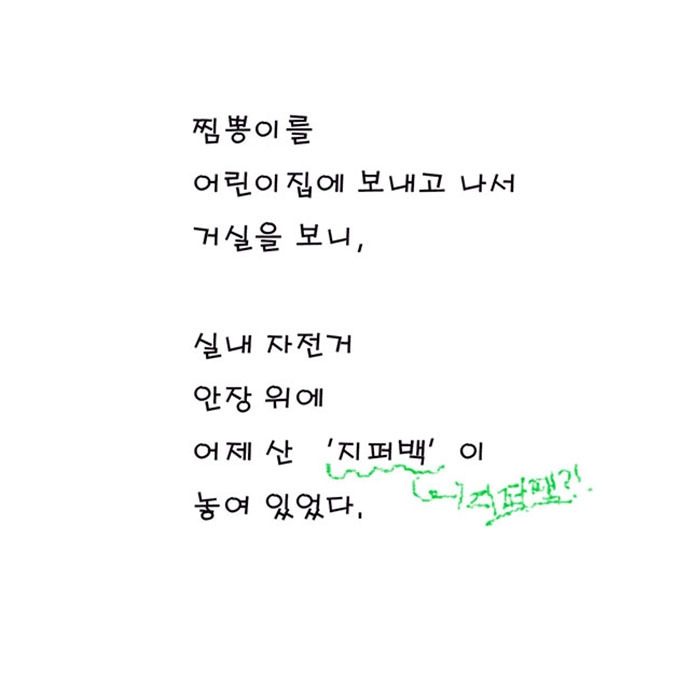 찜뽕이를
어린이집에 보내고 나서
거실을 보니,
실내 자전거
안장 위에
어제 산 '지퍼백' 이
놓여 있었다.